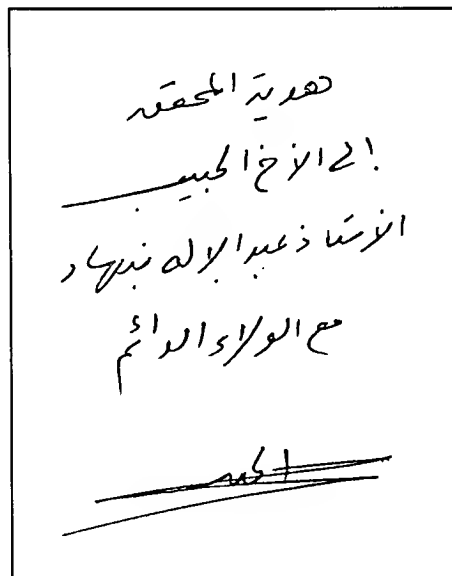 هدية المحقق
إلى الأخ الحبيب
الأستاذ عبد الإله نبهان
مع الولاء الدائم